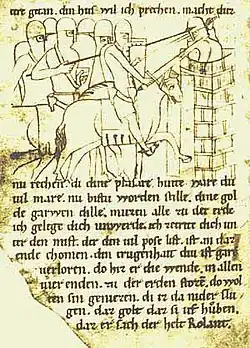 ure getan. din hus wil ich prechen. macht duz
nu rechen. di dine phafare. hutte ware du
uil mare. nu bistu worden stille. dine gol
de garwen dille. muzen alle zu der erde
ich gelege dich unwerde. ich zerire dich un
ter den mist. der din uil pose list. ist in daz
ende chomen. den trugenhaft du ist gare
verloren. do hiz er die wende. in allen
uier enden. zu der erden storen. do wol
ten sin geuieren. di er da nider slu
gen. daz golt daz si uf huben.
daz er sach der helt Rolant.